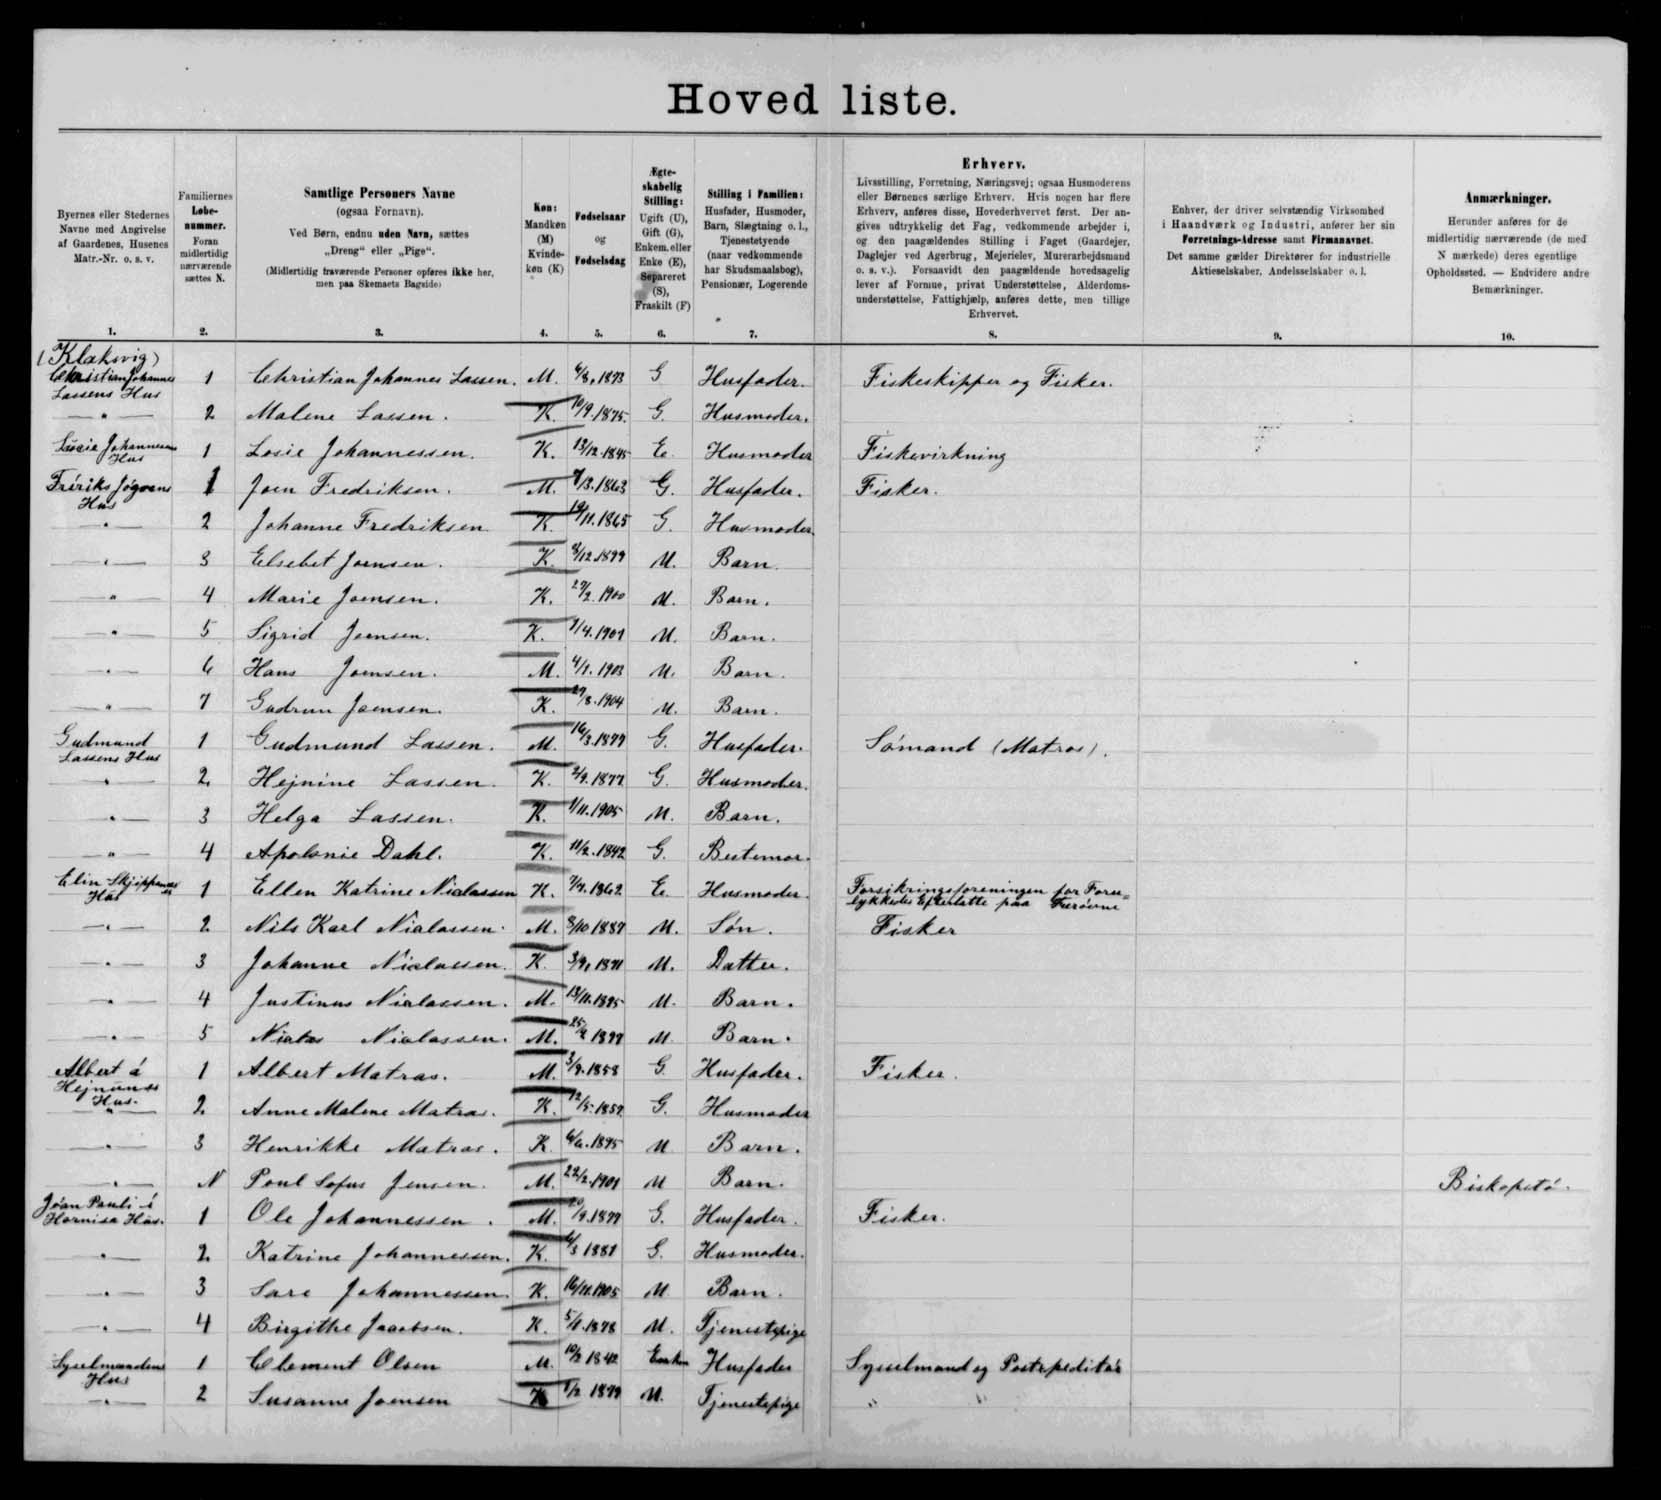 Hoved liste.
Byernes eller Stedernes
Navne med Angivelse
af Gaardenes, Husenes
Matr.-Nr. o. s. v.
1.
Familiernes
Løbe-
nummer.
Foran
midlertidig
nærværende
sættes N.
2.
Samtlige Personers Navne
(ogsaa Fornavn).
Ved Børn, endnu uden Navn, sættes
„Dreng“ eller „Pige“.
(Midlertidig fraværende Personer opføres ikke her,
men paa Skemaets Bagside)
3.
Køn:
Mandkøn
(M)
Kvinde-
køn (K)
4.
Fødselsaar
og
Fødselsdag
5.
Ægte-
skabelig
Stilling:
Ugift (U),
Gift (G),
Enkem. eller
Enke (E),
Separeret
(S),
Fraskilt (F)
6.
Stilling i Familien:
Husfader, Husmoder,
Barn, Slægtning o. l.,
Tjenestetyende
(naar vedkommende
har Skudsmaalsbog),
Pensionær, Logerende
7.
Erhverv.
Livsstilling, Forretning, Næringsvej; ogsaa Husmoderens
eller Børnenes særlige Erhverv. Hvis nogen har flere
Erhverv, anføres disse, Hovederhvervet først. Der an-
gives udtrykkelig det Fag, vedkommende arbejder i,
og den paagældendes Stilling i Faget (Gaardejer,
Daglejer ved Agerbrug, Mejerielev, Murerarbejdsmand
o. s. v.). Forsaavidt den paagældende hovedsagelig
lever af Formue, privat Understøttelse, Alderdoms-
understøttelse, Fattighjælp, anføres dette, men tillige
Erhvervet.
8.
Enhver, der driver selvstændig Virksomhed
i Haandværk og Industri, anfører her sin
Forretnings-Adresse samt Firmanavnet.
Det samme gælder Direktører for industrielle
Aktieselskaber, Andelsselskaber o. l.
9.
Anmærkninger.
Herunder anføres for de
midlertidig nærværende (de med
N mærkede) deres egentlige
Opholdssted. — Endvidere andre
Bemærkninger.
10.
(Klaksvig)
Christian Johannes
Lassens Hus
1 Christian Johannes Lassen. M. 6/8, 1873 G Husfader. Fiskeskipper og Fisker.
— " — 2 Malene Lassen. K. 10/9. 1875. G. Husmoder.
Johannesens
Hus
1 Losie Johannessen. K. 13/12. 1845 E. Husmoder Fiskevirkning
Fréríks Jógvans
Hus
1 Joen Fredriksen. M. 1863 G. Husfader. Fisker.
— " — 2 Johanne Fredriksen. K. 19/11. 1865 G. Husmoder.
— " — 3 Elsebet Joensen. K. 8/12. 1899 U. Barn.
— " — 4 Marie Joensen. K. 27/2. 1900 U. Barn.
— " — 5 Sigrid Joensen. K. 1/4. 1901 U. Barn.
— " — 6 Hans Joensen. M. 4/1. 1903 U. Barn.
— " — 7 Gudrun Joensen. K. 27/8. 1904 U. Barn.
Gudmund
Lassens Hus
1 Gudmund Lassen. M. 16/3. 1877 G. Husfader. Sømand (Matros).
— " — 2 Hejnine Lassen. K. 2/9. 1877 G. Husmoder.
— " — 3 Helga Lassen. K. 1/11. 1905 U. Barn.
— " — 4 Apolonie Dahl. K. 11/2. 1842 G. Bestemor.
Elin
Hus
1 Ellen Katrine Niclassen K. 1862 E. Husmoder. Forsikringsforeningen for Foru=
lykkedes Efterlatte paa Færøerne
— " — 2 Nils Karl Niclassen. M. 8/10 1887 U. Søn. Fisker
— " — 3 Johanne Niclassen. K. 3/9, U. Datter.
— " — 4 Justinus Niclassen. M. 13/11. 1895 U. Barn.
— " — 5 Niclas Niclassen. M. U. Barn.
Albert á
Hus.
1 Albert Matras. M. 3/9. 1858 G. Husfader. Fisker.
— " — 2 Anne Malene Matras. K. 12/5. 1857 G. Husmoder
— " — 3 Henrikke Matras. K. 6/6. 1895 U. Barn.
— " — N Poul Sofus Jensen. M. 22/2. 1901 U Barn. Biskopstø.
Jóan Pauli í
Hornisa Hús.
1 Ole Johannessen. M. G. Husfader. Fisker.
— " — 2 Katrine Johannessen. K. 1881 G. Husmoder.
— " — 3 Sara Johannessen. K. 16/11. 1905 U Barn.
— " — 4 Birgithe Jacobsen. K. 5/1. 1878 U. Tjenestepige
Sysselmandens
Hus
1 Clement Olsen M. 10/2 1842 Enkem Husfader Sysselmand og Postexpeditør
— " — 2 Susanne Joensen K U. Tjenestepige " "